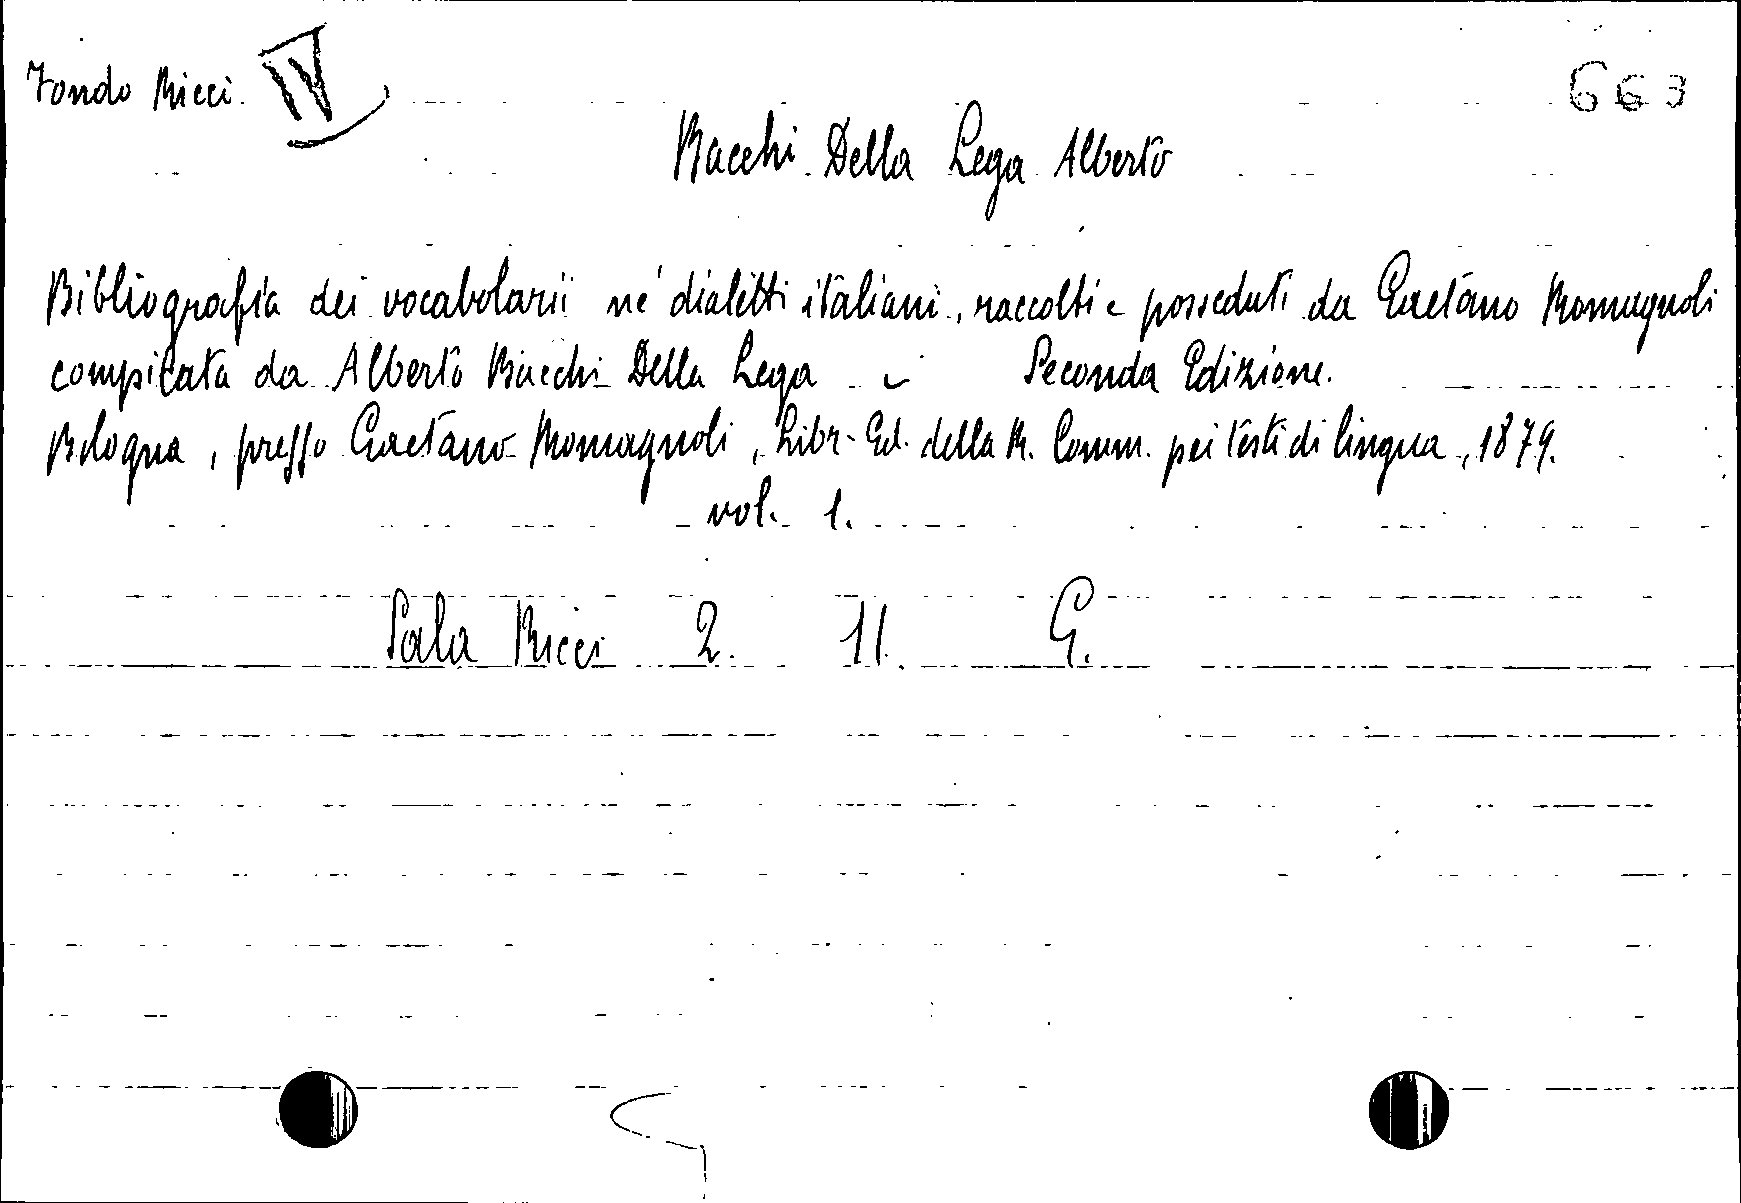 Fondo Ricci. IV 663
Bacchi Della Lega Alberto
Bibliografia dei vocabolarii ne' dialetti italiani, raccolti e posseduti da Gaetano Romagnoli
compilata da Alberto Bacchi Della Lega Seconda Edizione.
Bologna, presso Gaetano Romagnoli, Libr. Ed. della R. Comm. pei testi di lingua, 1879.
vol. 1.
Sala Ricci 2. 11. G.